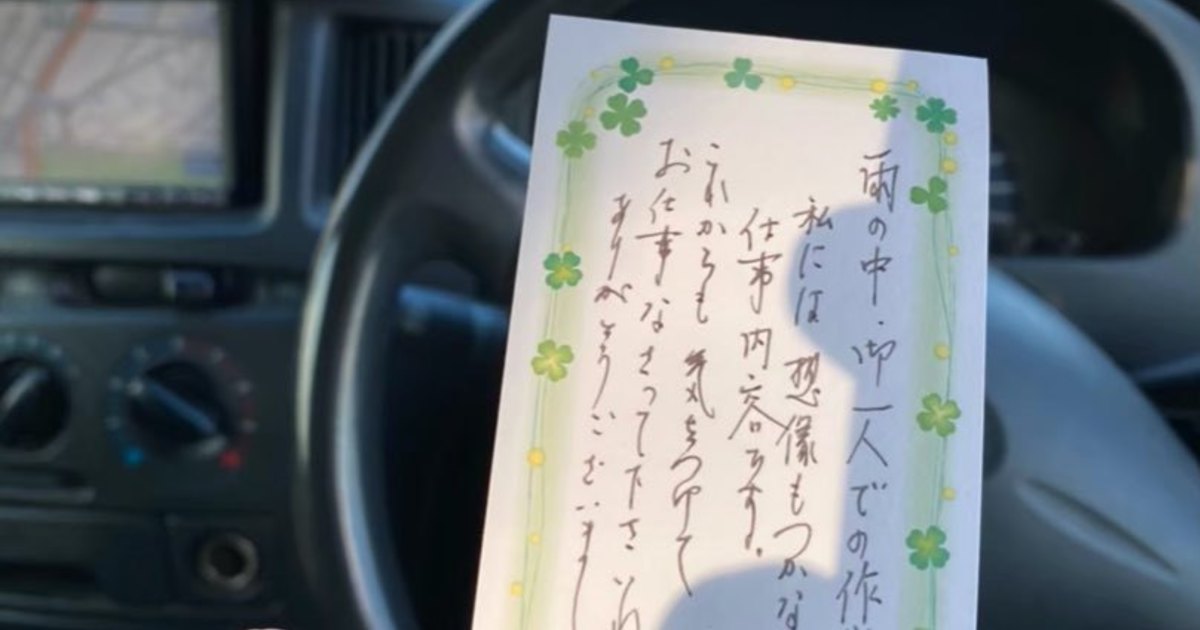 雨の中・御一人での作
私には想像もつかな
仕事内容です。
これからも気をつけて
お仕事なさって下さいね
ありがとうございまし